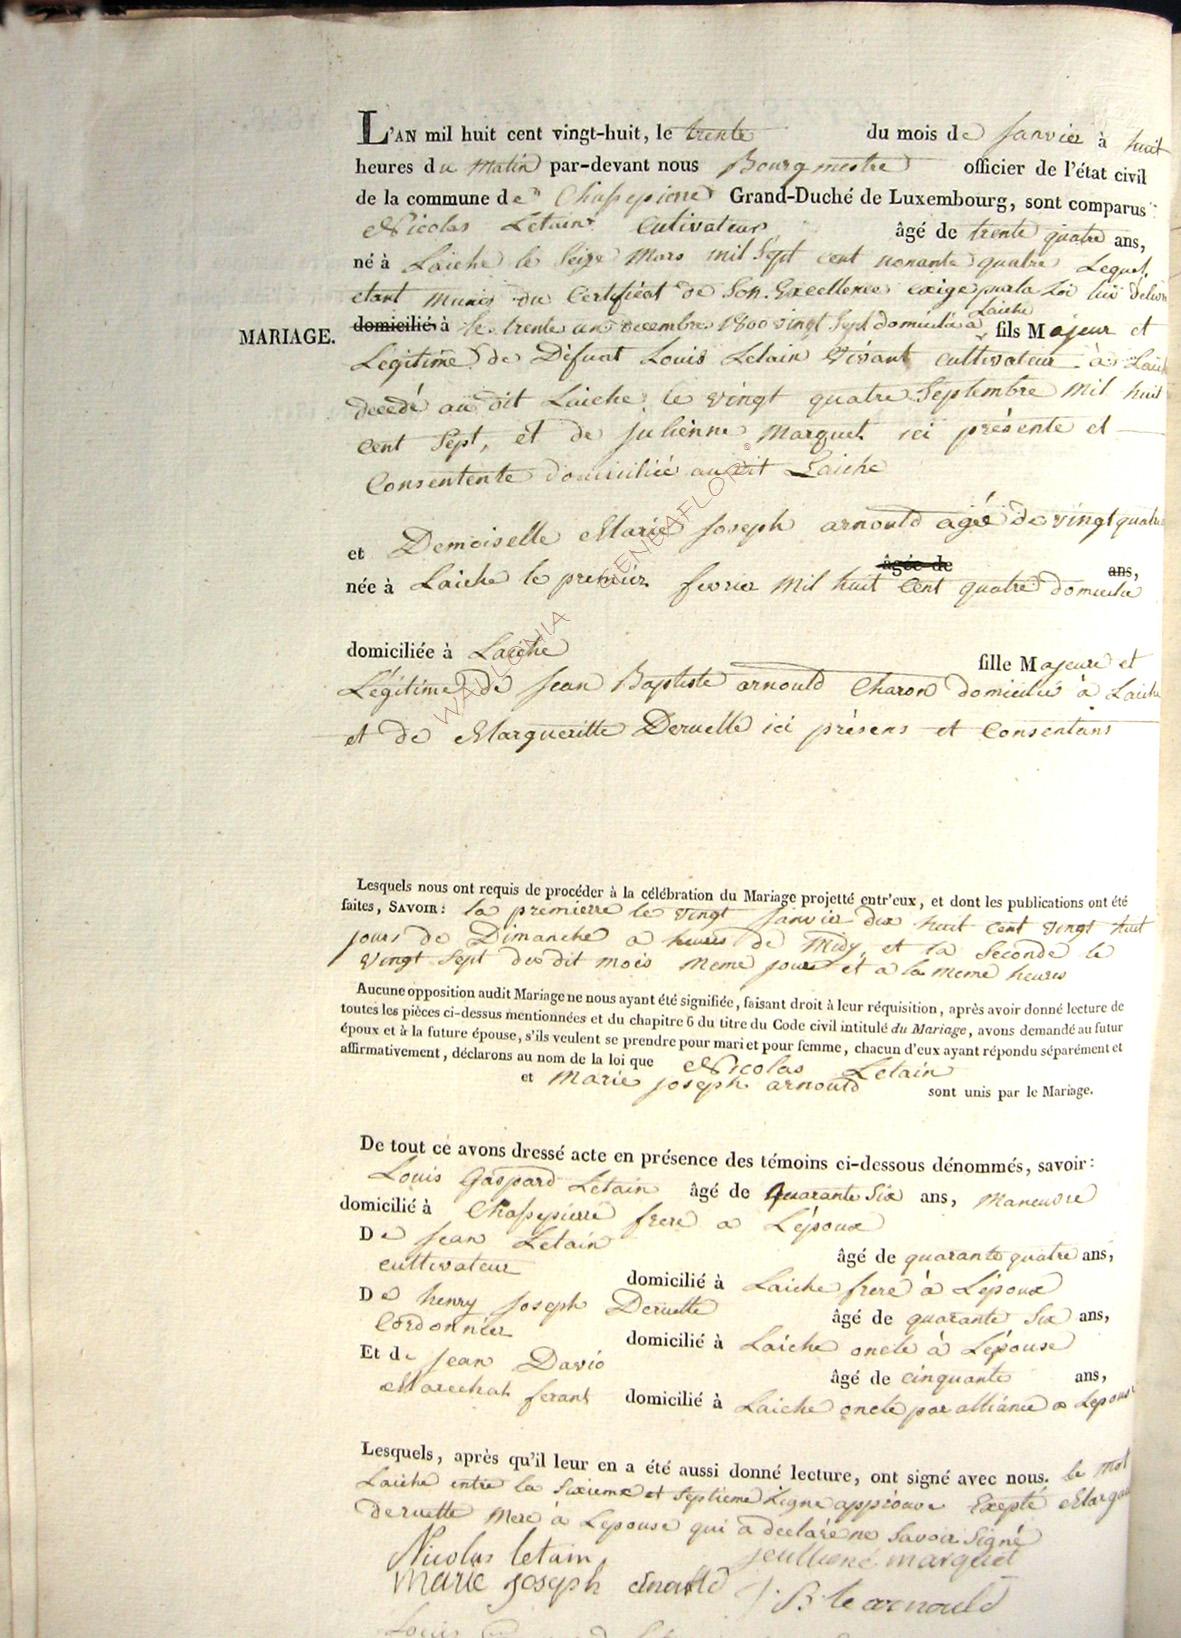 L'AN mil huit cent vingt-huit, le trente du mois de Janvier à huit
heures du Matin par-devant nous Bourgmestre officier de l'état civil
de la commune de Chassepierre Grand-Duché de Luxembourg, sont comparus :
Nicolas Letain Cutivateur âgé de trente quatre ans,
né à Laiche le Seize Mars mil Sept cent nonante quatre Lequel
etant Munis du Certificat de Son Excellence exigé par la Loi lui délivré
Laiche
MARIAGE. domicilié à le trente un decembre 1800 vingt Sept domicilié à fils Majeur et
Légitime de Défunt Louis Letain Vivant cultivateur à Laiche
decedé au dit Laiche le vingt quatre Septembre Mil huit
Cent Sept, et de Julienne Marquet ici présente et
Consentente domiciliée au dit Laiche
et Demoiselle Marie Joseph arnould agée de vingt quatre
âgée de ans,
née à Laiche le premier fevrier Mil huit Cent quatre domicilié
domiciliée à Laiche fille Majeure et
Légitime de Jean Baptiste arnould Charon domicilié à Laiche
et de Margueritte Deruelle ici présens et Consentans
Lesquels nous ont requis de procéder à la célébration du Mariage projetté entr'eux, et dont les publications ont été
faites, SAVOIR : la premierre le vingt Janvier dix huit Cent vingt huit
jours de Dimanche a heures de Midy, et la Seconde le
Vingt Sept du dit mois meme jour et a la meme heures
Aucune opposition audit Mariage ne nous ayant été signifiée, faisant droit à leur réquisition, après avoir donné lecture de
toutes les pièces ci-dessus mentionnées et du chapitre 6 du titre du Code civil intitulé du Mariage, avons demandé au futur
époux et à la future épouse, s'ils veulent se prendre pour mari et pour femme, chacun d'eux ayant répondu séparément et
affirmativement, déclarons au nom de la loi que Nicolas Letain
et Marie Joseph arnould sont unis par le Mariage.
De tout ce avons dressé acte en présence des témoins ci-dessous dénommés, savoir :
Louis Gaspard Letain âgé de Quarante Six ans, Maneuvre
domicilié à Chassepierre frere a Lépoux
De Jean Letain âgé de quarante quatre ans,
cultivateur domicilié à Laiche frere à Lépoux
De henry Joseph Deruelle âgé de quarante Six ans,
Cordonnier domicilié à Laiche oncle à Lépouse
Et de Jean David âgé de cinquante ans,
Marechal ferant domicilié à Laiche oncle par alliance a Lepouse
Lesquels, après qu'il leur en a été aussi donné lecture, ont signé avec nous. le mot
Laiche entre la Sixieme et Septieme Ligne approuve Exepté Margueritte
Deruelle Mere à Lepouse qui a declaré ne Savoir Signé
Nicolas letain Jeullienne marquet
Marie Joseph arnould J B te arnould
WALLONIA GENEAFLOR ©